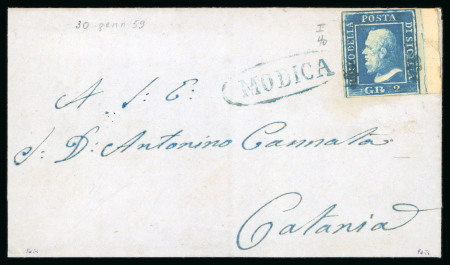 30 genn 59
I
40
BOLLO DELLA POSTA DI SICILIA
GR 2
MODICA
A S: E:
S. D. Antonino Cannata
Catania